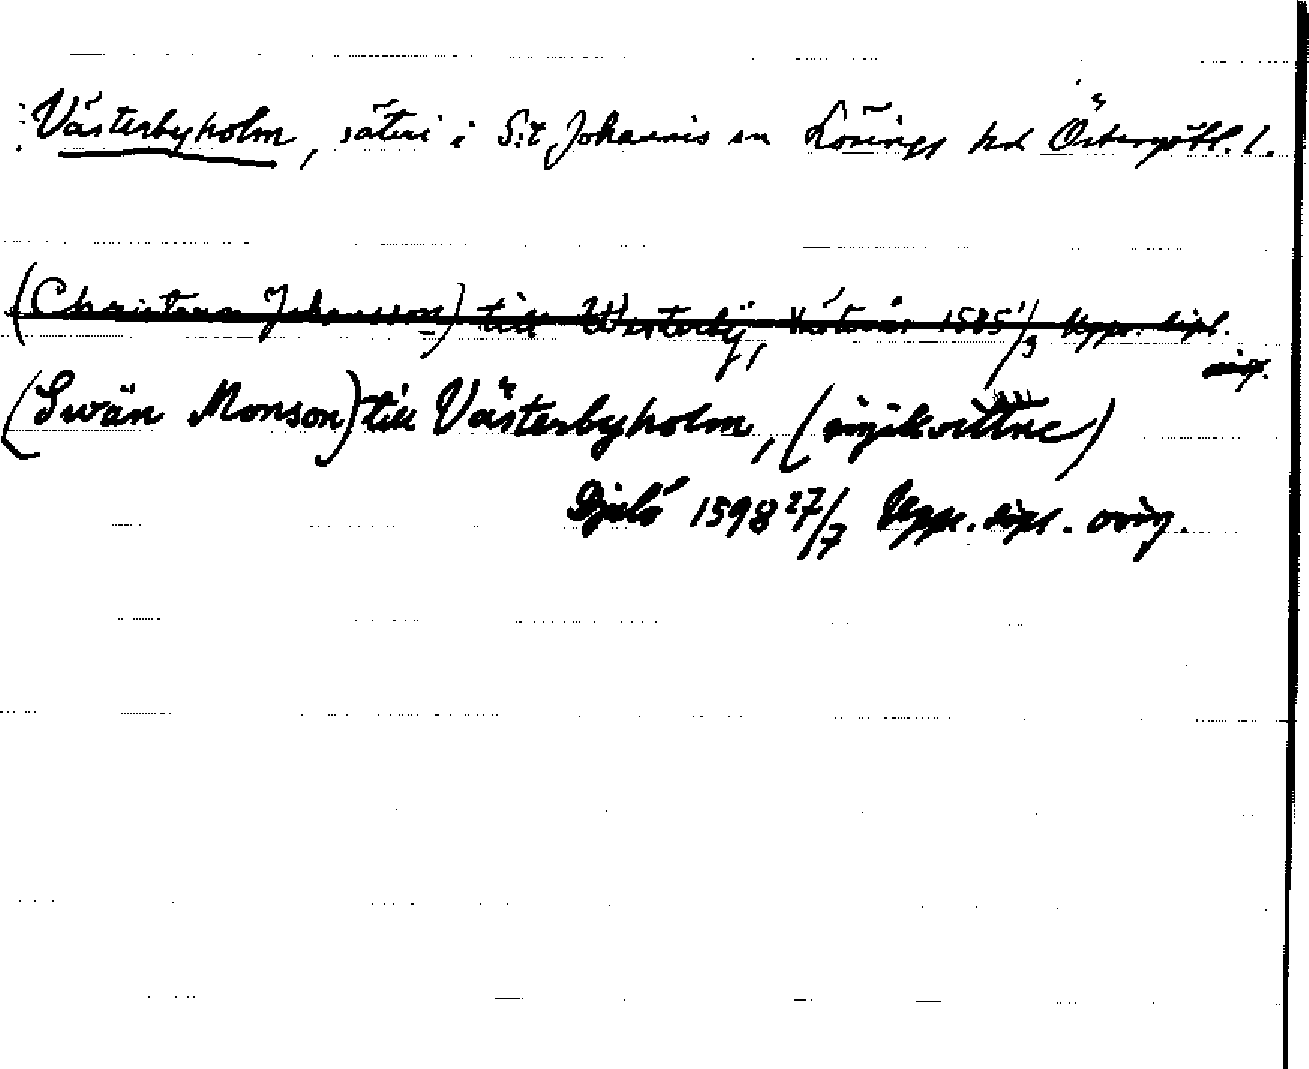 Västerbyholm, säteri i S:t Johannis sn Lösings hd Östergötl. l.
(Christern Johansson) till Westerbÿ, Västerås 1585 1/3 Upps. dipl. orig.
(Swän Monson) till Västerbyholm, (sigillvittne)
1598 27/7 Upps. dipl. orig.